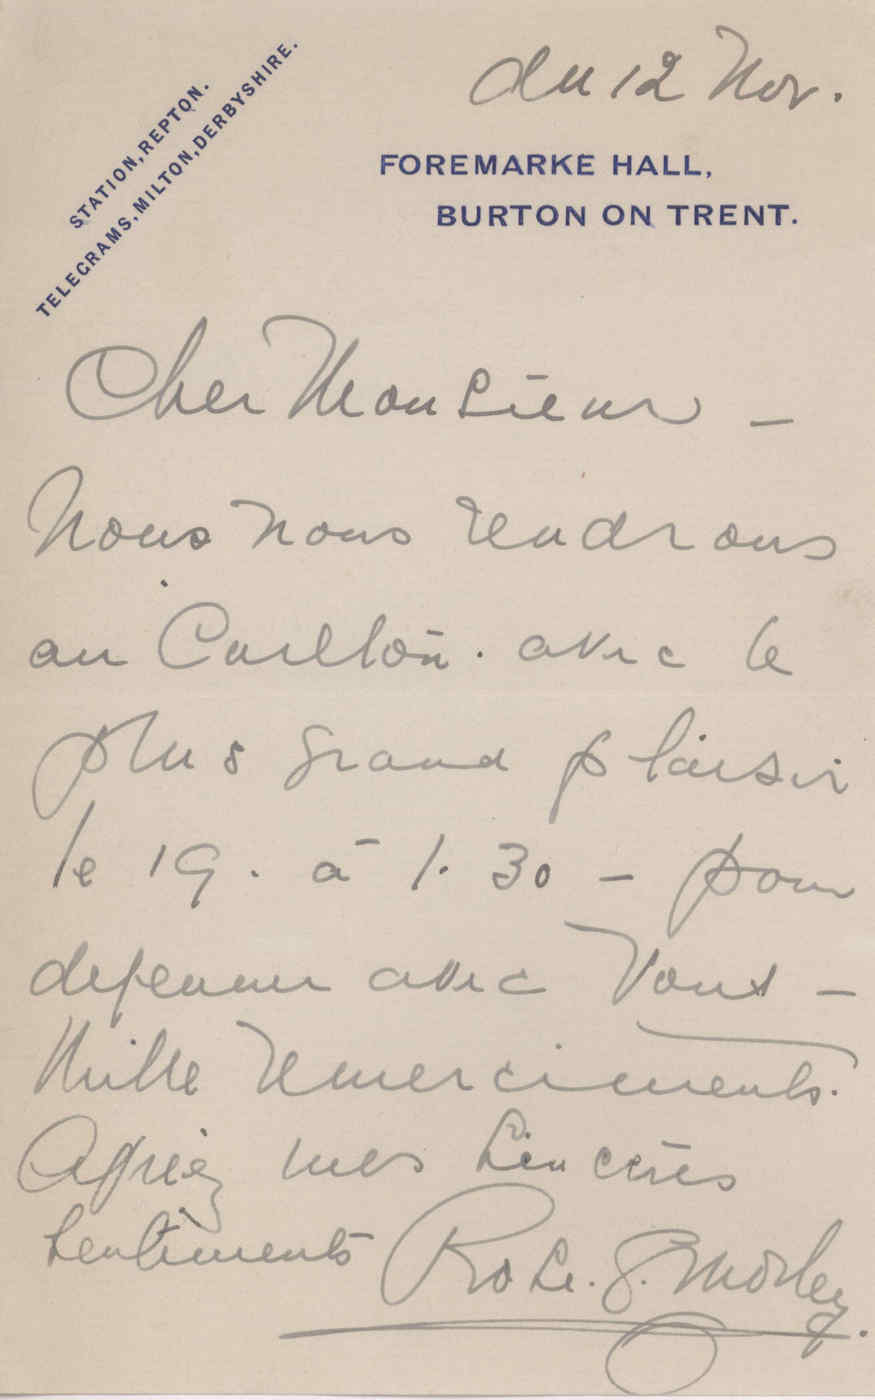 STATION, REPTON.
TELEGRAMS, MILTON, DERBYSHIRE.
du 12 Nov.
FOREMARKE HALL,
BURTON ON TRENT.
Cher Monsieur –
Nous nous rendrons
au Carlton. avec le
plus grand plaisir
le 19. à 1.30 – pour
dejeuner avec Vous –
Mille remerciments.
Agriéz mes Sincères
Sentiments Rose. G. Morley.